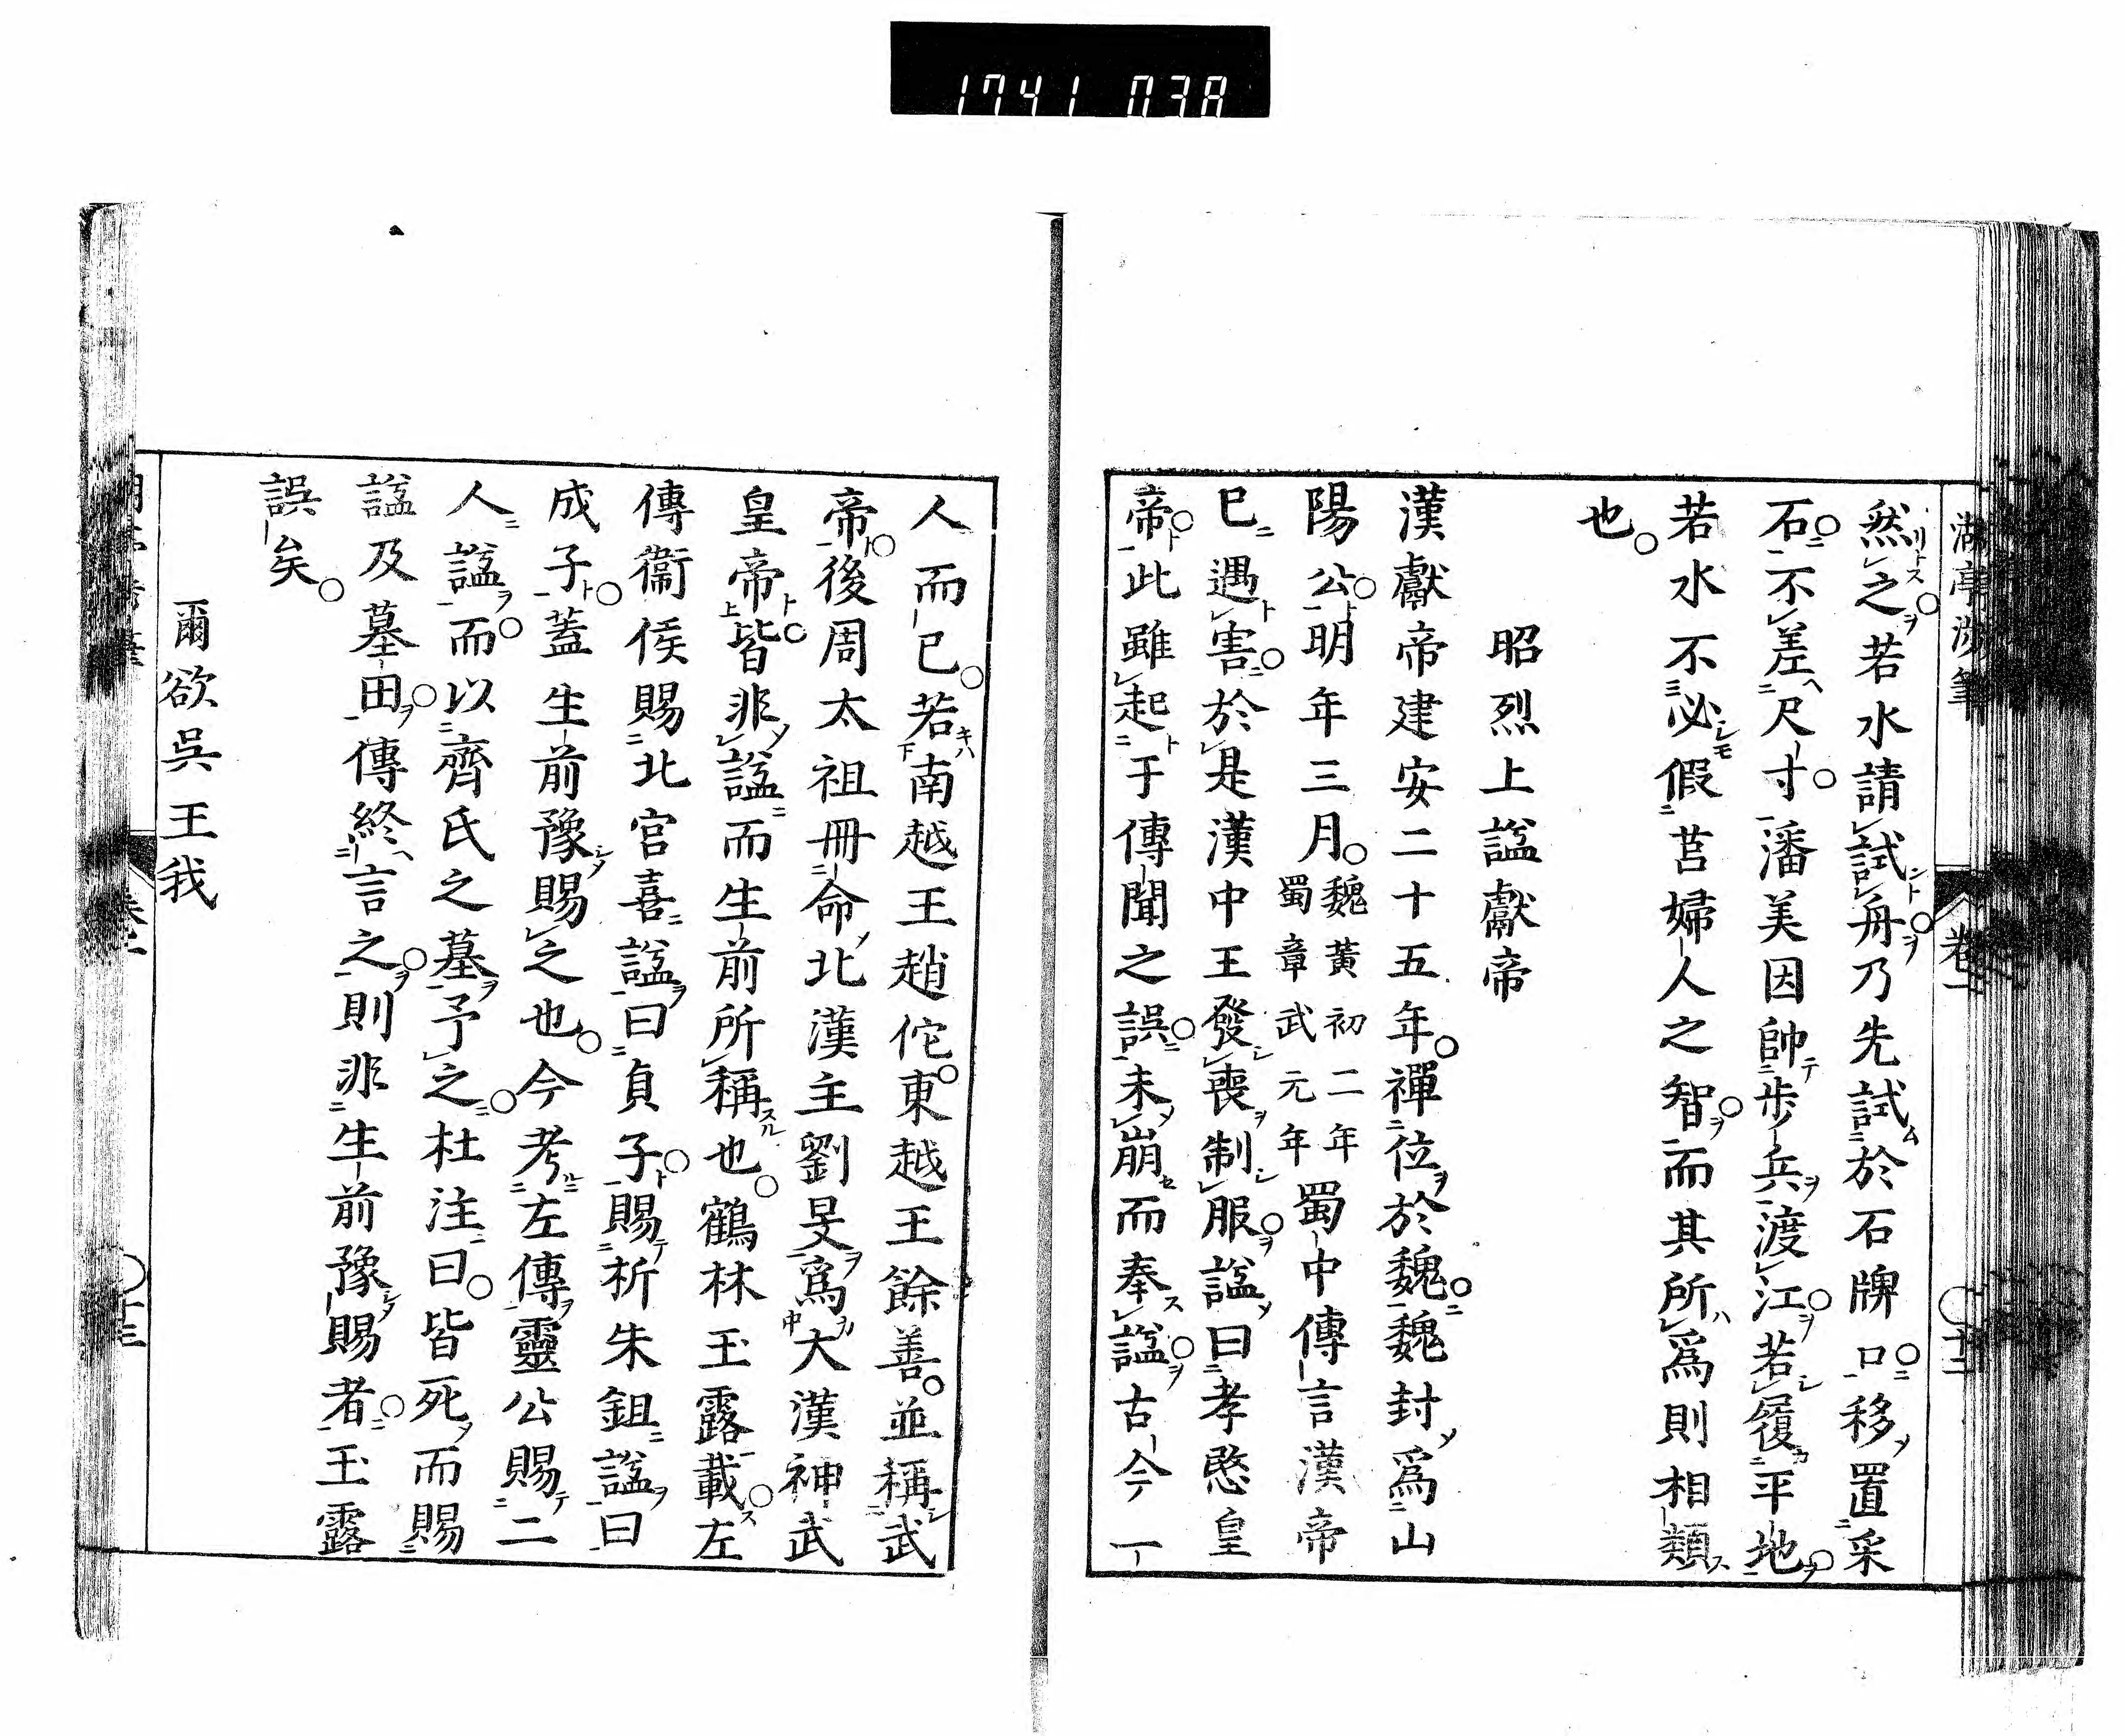 1741 038
湖亭渉筆 卷二 十三
然之若水請試舟乃先試於石牌口移置采
石不差尺寸潘美因帥歩兵渡江若履平地
若水不必假莒婦人之智而其所爲則相類
也
昭烈上謚獻帝
漢獻帝建安二十五年禪位於魏魏封爲山
陽公明年三月魏黃初二年蜀章武元年蜀中傳言漢帝
已遇害於是漢中王發喪制服謚曰孝愍皇
帝此雖起于傳聞之誤未崩而奉謚古今一
人而已若南越王趙佗東越王餘善並稱武
帝後周太祖冊命北漢主劉旻爲大漢神武
皇帝皆非謚而生前所稱也鶴林玉露載左
傳衞侯賜北宮喜謚曰貞子賜析朱鉏謚曰
成子蓋生前豫賜之也今考左傳靈公賜二
人謚而以齊氏之墓予之杜注曰皆死而賜
謚及墓田傳終言之則非生前豫賜者玉露
誤矣
爾欲吳王我